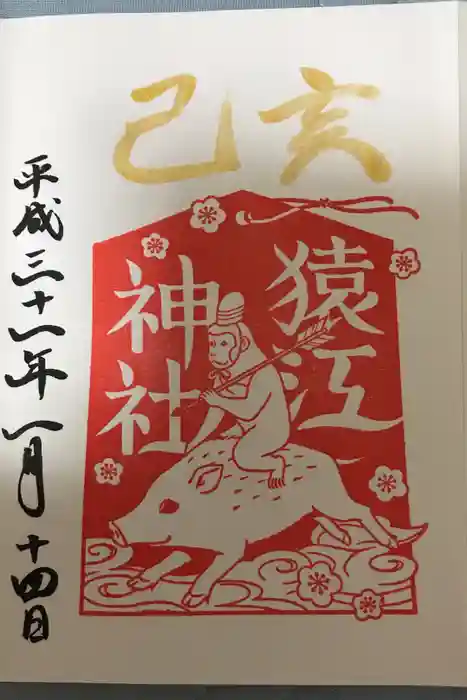 己亥
猿江
神社
平成三十一年一月十四日